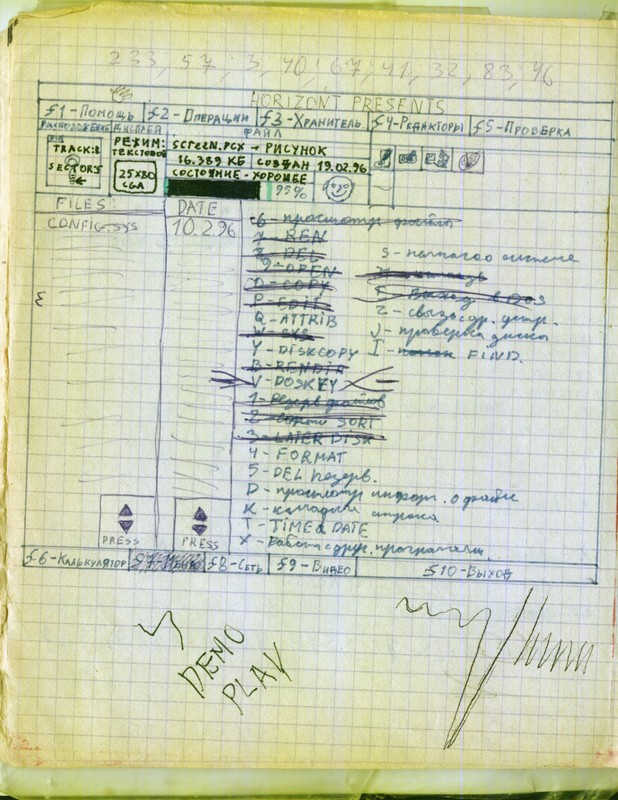 233, 57, 3, 40, 67, 41, 32, 83, 46
HORIZONT PRESENTS
f1-Помощь f2-Операции f3-Хранитель f4-Редакторы f5-Проверка
РАСПОЛОЖЕНИЕ ДИСПЛЕЙ ФАЙЛ
TRACK:8
SECTOR:5
РЕЖИМ:
ТЕКСТОВОЙ
25X80
CGA
SCREEN.PCX → РИСУНОК
16.389 КБ СОЗДАН 19.02.96
СОСТОЯНИЕ - ХОРОШЕЕ
95%
FILES: DATE
CONFIG.SYS 10.2.96
6 - просмотр файла
7 - REN
8 - DEL
9 - OPEN
O - COPY
P - EDIT
Q - ATTRIB
W - SYS
Y - DISKCOPY
B - RENDIR
V - DOSKEY
1 - Резерв файлов
2 - SORT
3 - LATER DISK
4 - FORMAT
5 - DEL резерв.
D - просмотр информ. о файле
K - командная строка
T - TIME & DATE
X - Работа с друг. программами
S - системе
F - Выход в DOS
Z - связь с др. устр.
J - проверка диска
I - FIND.
PRESS PRESS
f6-Калькулятор f8-Сеть f9-Видео f10-Выход
DEMO
PLAY